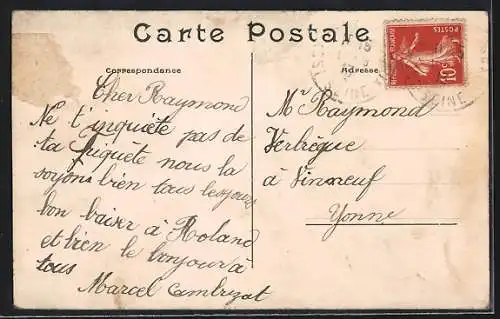 Carte Postale
Correspondance
Adresse
POSTES
10c
SEINE
SEINE
Cher Raymond
Ne t'inquiète pas de
ta friquète nous la
soyons bien tous les jours
bon baiser à Roland
et bien le bonjour à
tous
Marcel
Mr Raymond
Verbrèque
à Vinneuf
Yonne